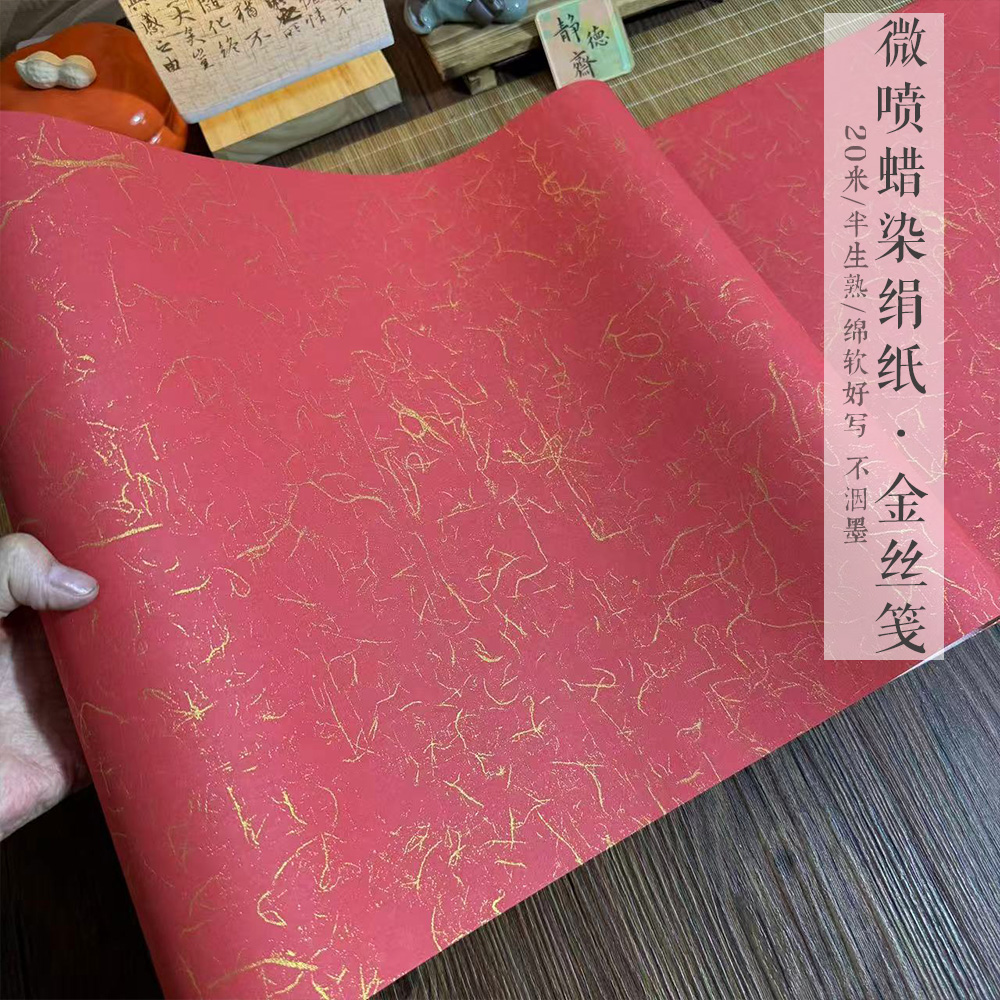 微喷蜡染绢纸·金丝笺
20米/半生熟/绵软好写 不洇墨
静德齋